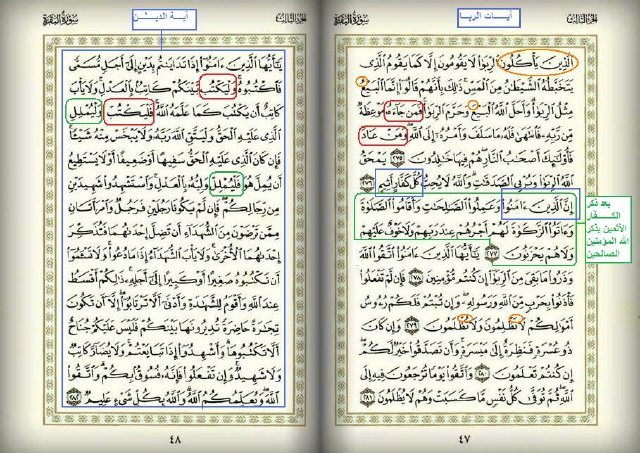 الجزء الثالث
آيات الربا
سورة البقرة
ٱلَّذِينَ يَأْكُلُونَ ٱلرِّبَوٰا۟ لَا يَقُومُونَ إِلَّا كَمَا يَقُومُ ٱلَّذِى
يَتَخَبَّطُهُ ٱلشَّيْطَٰنُ مِنَ ٱلْمَسِّ ذَٰلِكَ بِأَنَّهُمْ قَالُوٓا۟ إِنَّمَا ٱلْبَيْعُ
مِثْلُ ٱلرِّبَوٰا۟ وَأَحَلَّ ٱللَّهُ ٱلْبَيْعَ وَحَرَّمَ ٱلرِّبَوٰا۟ فَمَن جَآءَهُۥ مَوْعِظَةٌ
مِّن رَّبِّهِۦ فَٱنتَهَىٰ فَلَهُۥ مَا سَلَفَ وَأَمْرُهُۥٓ إِلَى ٱللَّهِ وَمَنْ عَادَ
فَأُو۟لَٰٓئِكَ أَصْحَٰبُ ٱلنَّارِ هُمْ فِيهَا خَٰلِدُونَ ٢٧٥ يَمْحَقُ
ٱللَّهُ ٱلرِّبَوٰا۟ وَيُرْبِى ٱلصَّدَقَٰتِ وَٱللَّهُ لَا يُحِبُّ كُلَّ كَفَّارٍ أَثِيمٍ ٢٧٦
إِنَّ ٱلَّذِينَ ءَامَنُوا۟ وَعَمِلُوا۟ ٱلصَّٰلِحَٰتِ وَأَقَامُوا۟ ٱلصَّلَوٰةَ
وَءَاتَوُا۟ ٱلزَّكَوٰةَ لَهُمْ أَجْرُهُمْ عِندَ رَبِّهِمْ وَلَا خَوْفٌ عَلَيْهِمْ
وَلَا هُمْ يَحْزَنُونَ ٢٧٧ يَٰٓأَيُّهَا ٱلَّذِينَ ءَامَنُوا۟ ٱتَّقُوا۟ ٱللَّهَ
وَذَرُوا۟ مَا بَقِىَ مِنَ ٱلرِّبَوٰٓا۟ إِن كُنتُم مُّؤْمِنِينَ ٢٧٨ فَإِن لَّمْ تَفْعَلُوا۟
فَأْذَنُوا۟ بِحَرْبٍ مِّنَ ٱللَّهِ وَرَسُولِهِۦ وَإِن تُبْتُمْ فَلَكُمْ رُءُوسُ
أَمْوَٰلِكُمْ لَا تَظْلِمُونَ وَلَا تُظْلَمُونَ ٢٧٩ وَإِن كَانَ
ذُو عُسْرَةٍ فَنَظِرَةٌ إِلَىٰ مَيْسَرَةٍ وَأَن تَصَدَّقُوا۟ خَيْرٌ لَّكُمْ
إِن كُنتُمْ تَعْلَمُونَ ٢٨٠ وَٱتَّقُوا۟ يَوْمًا تُرْجَعُونَ فِيهِ إِلَى
ٱللَّهِ ثُمَّ تُوَفَّىٰ كُلُّ نَفْسٍ مَّا كَسَبَتْ وَهُمْ لَا يُظْلَمُونَ ٢٨١
٤٧
بعد ذكر
الكـــفار
الأثمين يذكر
الله المؤمنين
الصالحين
الجزء الثالث
آيــة الديــن
سورة البقرة
يَٰٓأَيُّهَا ٱلَّذِينَ ءَامَنُوٓا۟ إِذَا تَدَايَنتُم بِدَيْنٍ إِلَىٰٓ أَجَلٍ مُّسَمًّى
فَٱكْتُبُوهُ وَلْيَكْتُب بَّيْنَكُمْ كَاتِبٌۢ بِٱلْعَدْلِ وَلَا يَأْبَ
كَاتِبٌ أَن يَكْتُبَ كَمَا عَلَّمَهُ ٱللَّهُ فَلْيَكْتُبْ وَلْيُمْلِلِ
ٱلَّذِى عَلَيْهِ ٱلْحَقُّ وَلْيَتَّقِ ٱللَّهَ رَبَّهُۥ وَلَا يَبْخَسْ مِنْهُ شَيْـًٔا
فَإِن كَانَ ٱلَّذِى عَلَيْهِ ٱلْحَقُّ سَفِيهًا أَوْ ضَعِيفًا أَوْ لَا يَسْتَطِيعُ
أَن يُمِلَّ هُوَ فَلْيُمْلِلْ وَلِيُّهُۥ بِٱلْعَدْلِ وَٱسْتَشْهِدُوا۟ شَهِيدَيْنِ
مِن رِّجَالِكُمْ فَإِن لَّمْ يَكُونَا رَجُلَيْنِ فَرَجُلٌ وَٱمْرَأَتَانِ
مِمَّن تَرْضَوْنَ مِنَ ٱلشُّهَدَآءِ أَن تَضِلَّ إِحْدَىٰهُمَا فَتُذَكِّرَ
إِحْدَىٰهُمَا ٱلْأُخْرَىٰ وَلَا يَأْبَ ٱلشُّهَدَآءُ إِذَا مَا دُعُوا۟ وَلَا تَسْـَٔمُوٓا۟
أَن تَكْتُبُوهُ صَغِيرًا أَوْ كَبِيرًا إِلَىٰٓ أَجَلِهِۦ ذَٰلِكُمْ أَقْسَطُ
عِندَ ٱللَّهِ وَأَقْوَمُ لِلشَّهَٰدَةِ وَأَدْنَىٰٓ أَلَّا تَرْتَابُوٓا۟ إِلَّآ أَن تَكُونَ
تِجَٰرَةً حَاضِرَةً تُدِيرُونَهَا بَيْنَكُمْ فَلَيْسَ عَلَيْكُمْ جُنَاحٌ
أَلَّا تَكْتُبُوهَا وَأَشْهِدُوٓا۟ إِذَا تَبَايَعْتُمْ وَلَا يُضَآرَّ كَاتِبٌ
وَلَا شَهِيدٌ وَإِن تَفْعَلُوا۟ فَإِنَّهُۥ فُسُوقٌۢ بِكُمْ وَٱتَّقُوا۟
ٱللَّهَ وَيُعَلِّمُكُمُ ٱللَّهُ وَٱللَّهُ بِكُلِّ شَىْءٍ عَلِيمٌ ٢٨٢
٤٨